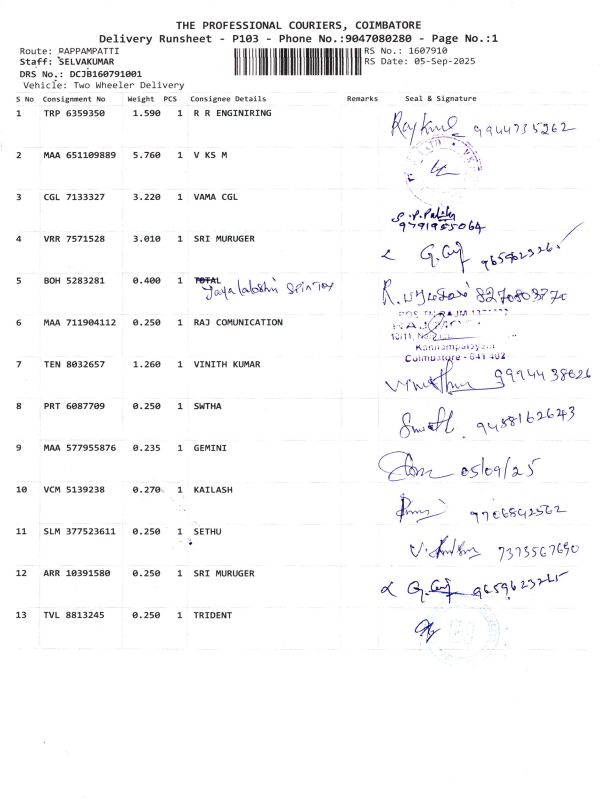 THE PROFESSIONAL COURIERS, COIMBATORE
Delivery Runsheet - P103 - Phone No.:9047080280 - Page No.:1
Route: PAPPAMPATTI RS No.: 1607910
Staff: SELVAKUMAR RS Date: 05-Sep-2025
DRS No.: DCJB160791001
Vehicle: Two Wheeler Delivery
S No Consignment No Weight PCS Consignee Details Remarks Seal & Signature
1 TRP 6359350 1.590 1 R R ENGINIRING 9944735262
2 MAA 651109889 5.760 1 V KS M
3 CGL 7133327 3.220 1 VAMA CGL
9791955064
4 VRR 7571528 3.010 1 SRI MURUGER
5 BOH 5283281 0.400 1 TOTAL 8270803770
6 MAA 711904112 0.250 1 RAJ COMUNICATION
Kannampalayam
Coimbatore - 641 402
7 TEN 8032657 1.260 1 VINITH KUMAR 9994438626
8 PRT 6087709 0.250 1 SWTHA 9488162643
9 MAA 577955876 0.235 1 GEMINI 05/09/25
10 VCM 5139238 0.270 1 KAILASH
11 SLM 377523611 0.250 1 SETHU 7373567690
12 ARR 10391580 0.250 1 SRI MURUGER
13 TVL 8813245 0.250 1 TRIDENT